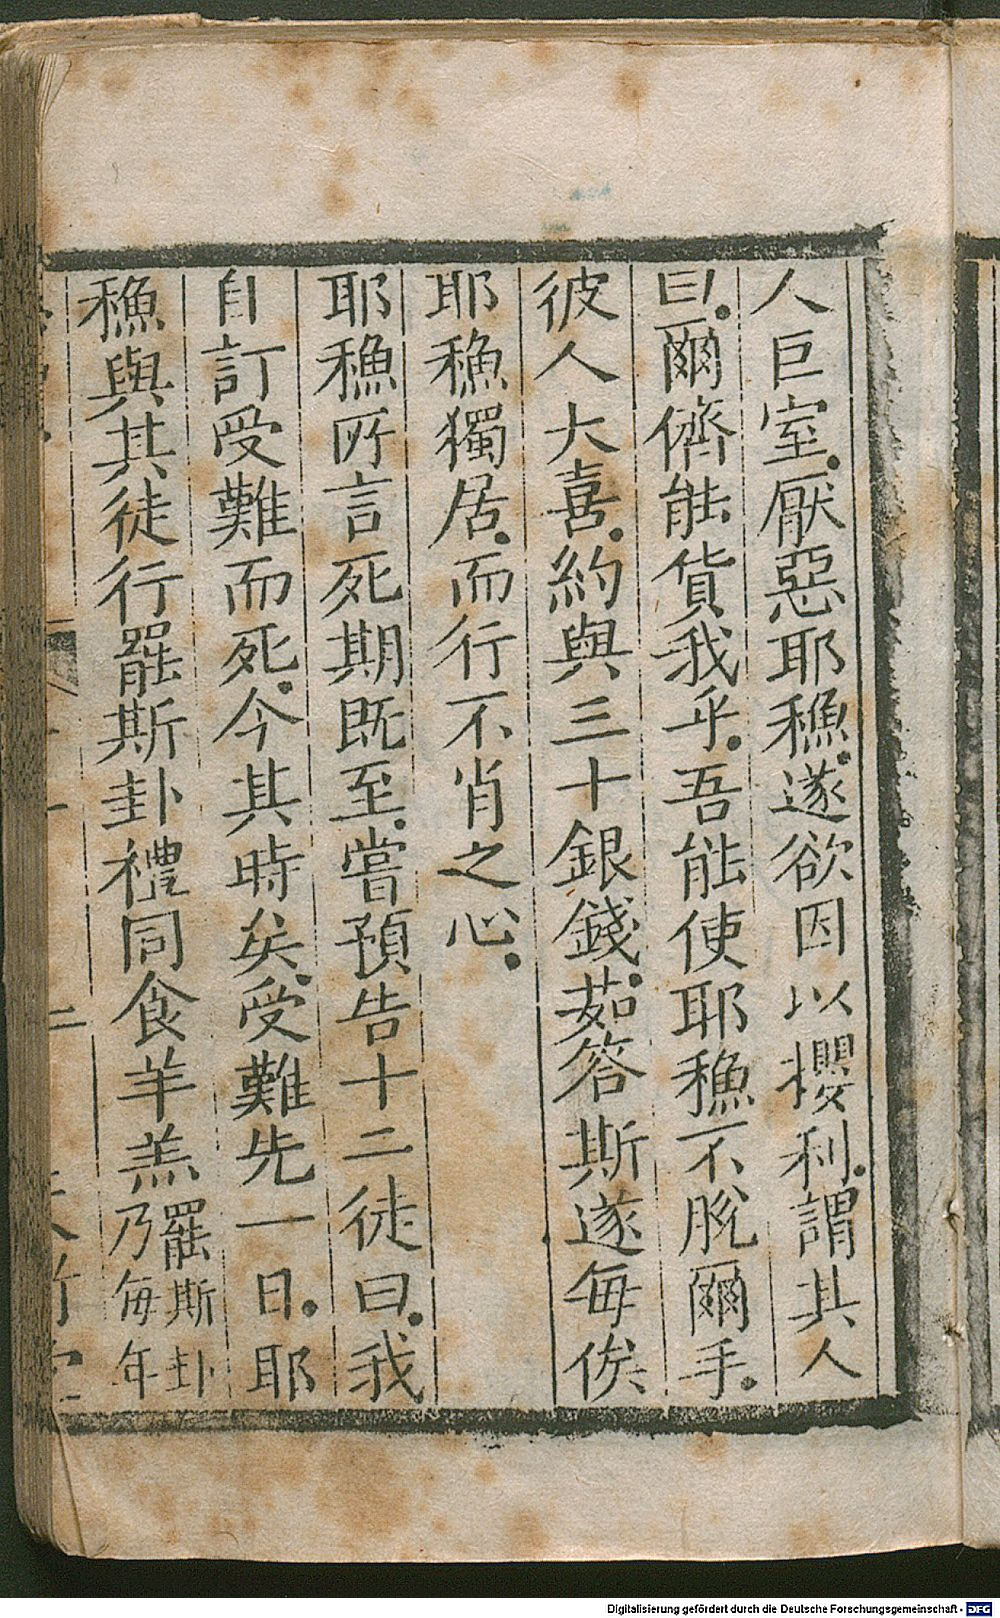 人巨室.厭惡耶穌.遂欲因以攖利.謂其人
曰.爾儕能貨我乎.吾能使耶穌不脫爾手.
彼人大喜.約與三十銀錢.茹答斯遂每俟
耶穌獨居.而行不肖之心.
耶穌所言死期既至.嘗預告十二徒曰.我
自訂受難而死.今其時矣.受難先一日.耶
穌與其徒行罷斯卦禮同食羊羔罷斯卦
乃每年
Digitalisierung gefördert durch die Deutsche Forschungsgemeinschaft - DFG